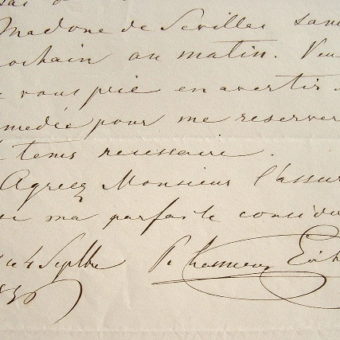 Madone de Séville, sam
prochain au matin. Veu
vous prie en avertir
médée pour me réserver
tems nécessaire.
Agréez Monsieur l'assur
ma parfaite considé
4 Septbre